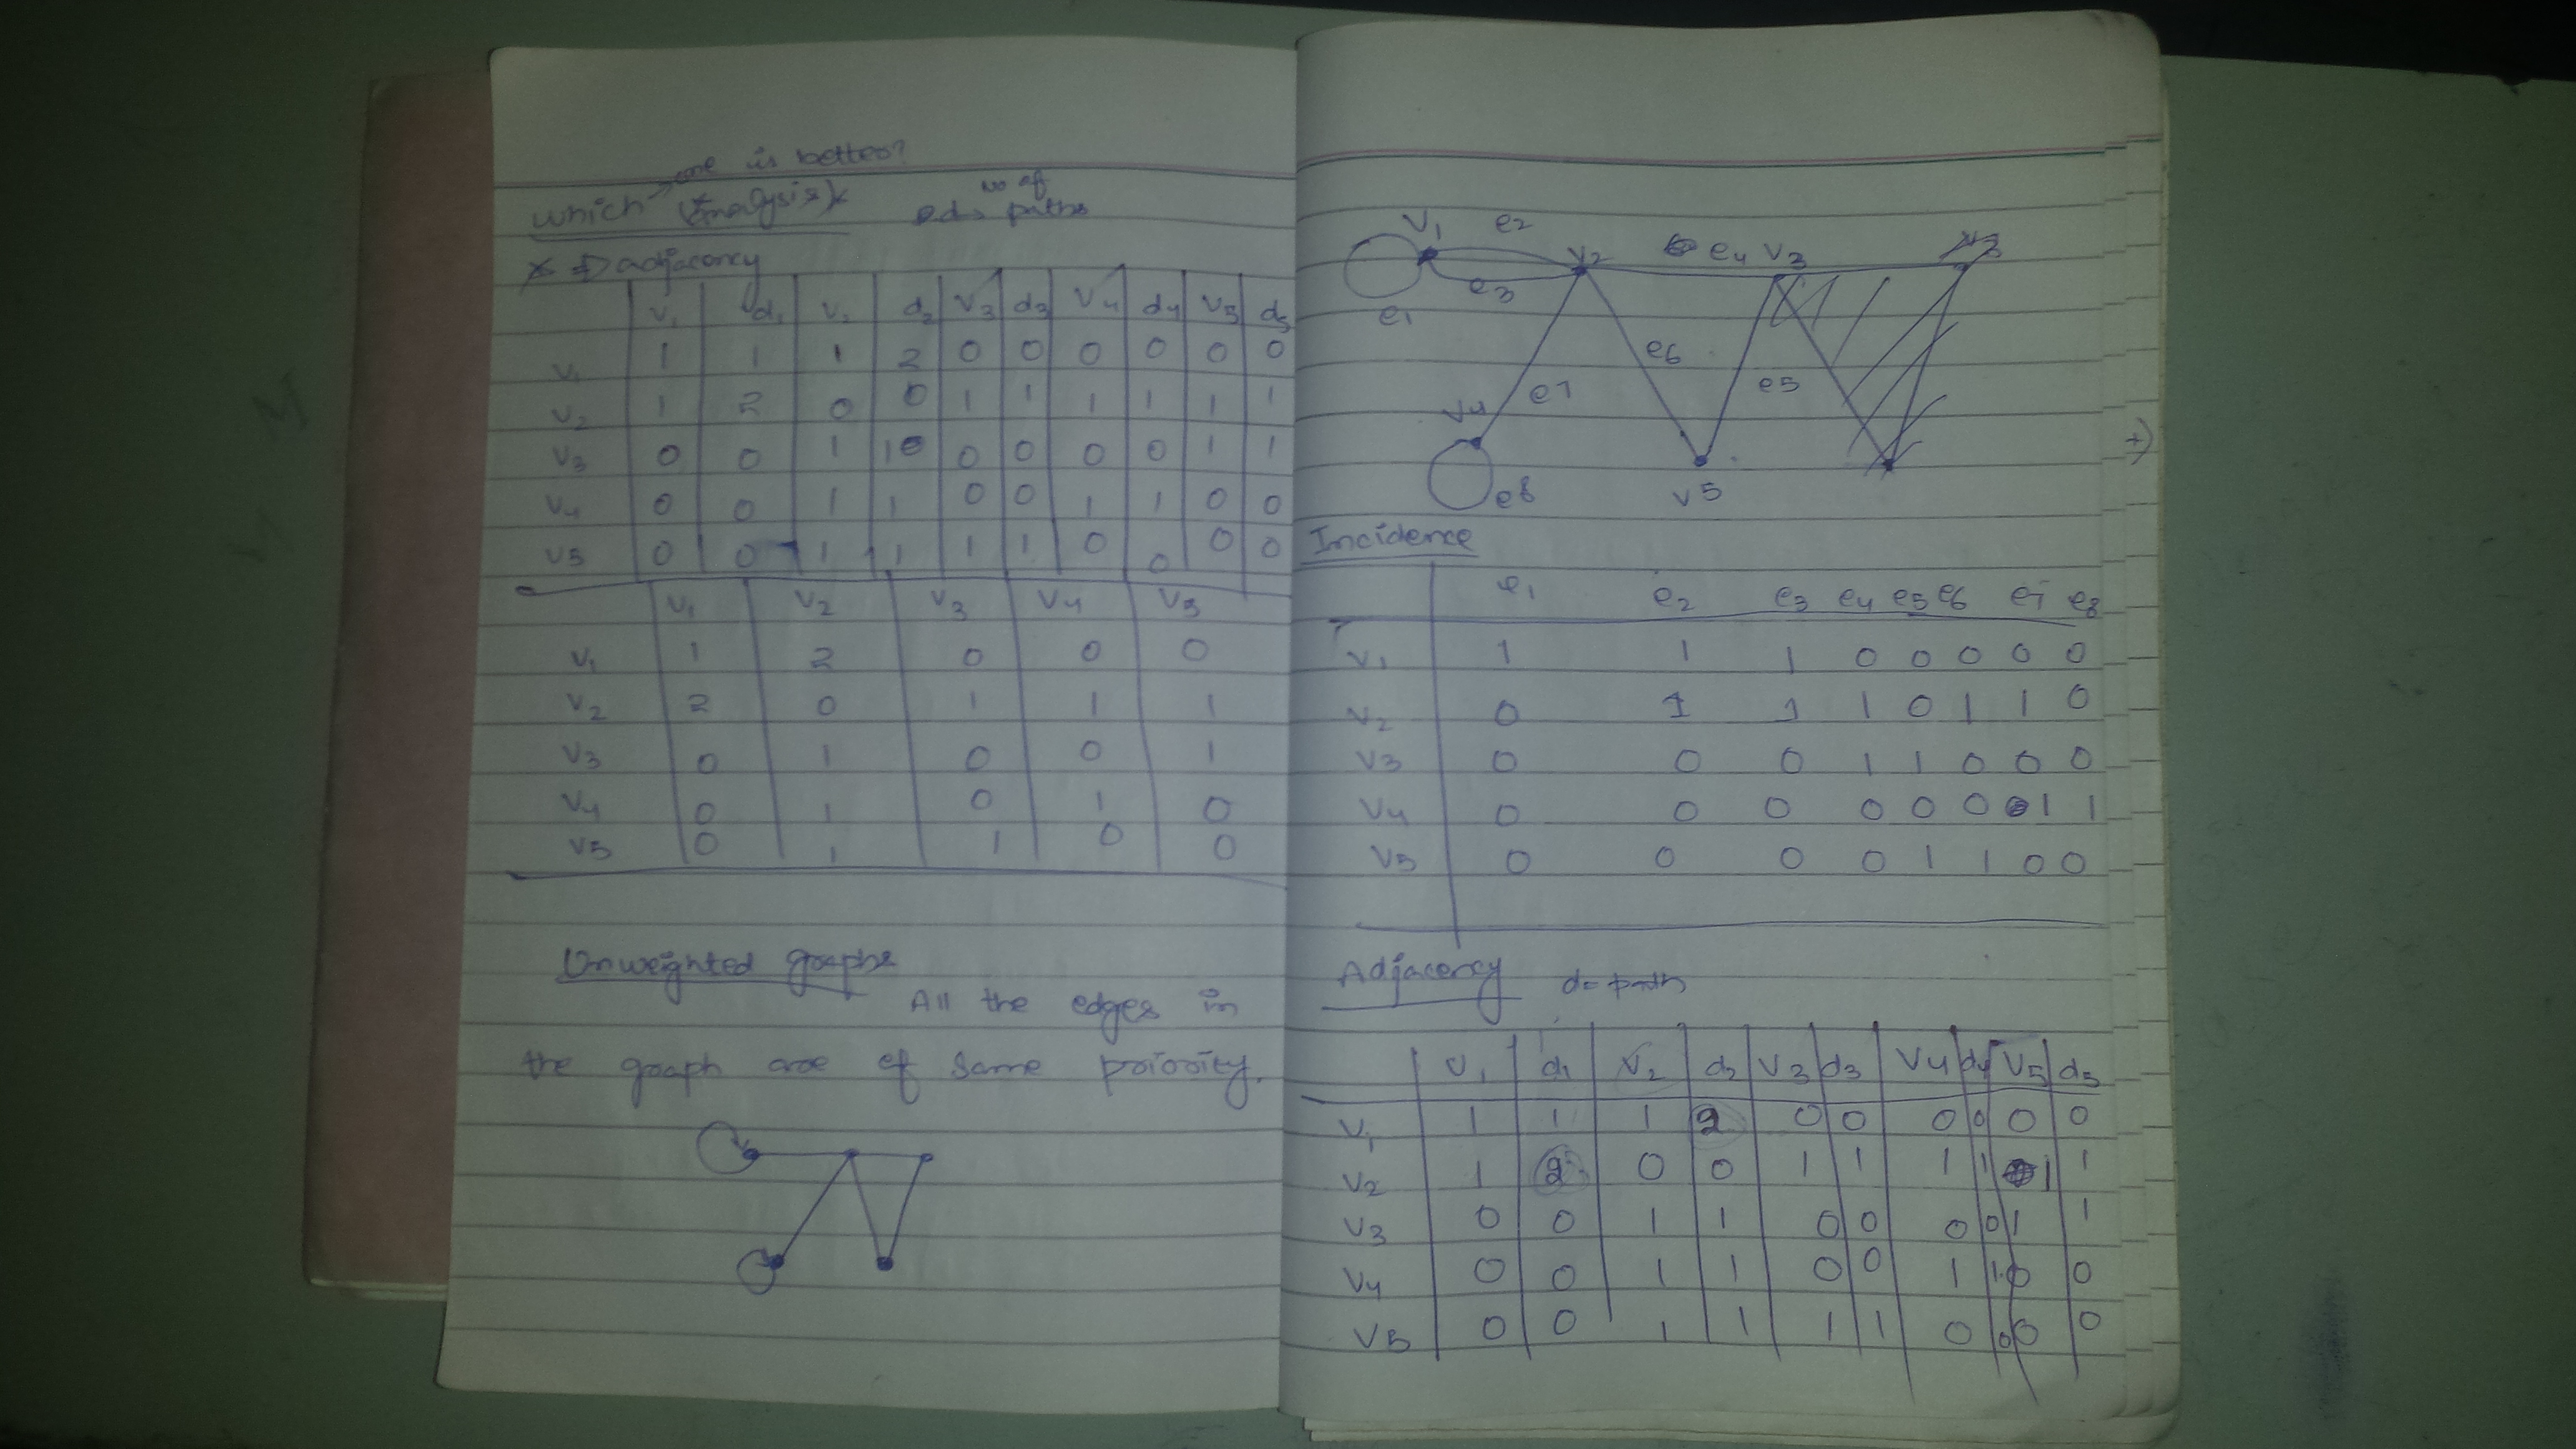 which one is better?
(Analysis)
d → no of paths
adjacency
v1 d1 v2 d2 v3 d3 v4 d4 v5 d5
v1 1 1 1 2 0 0 0 0 0 0
v2 1 2 0 0 1 1 1 1 1 1
v3 0 0 1 1 0 0 0 0 1 1
v4 0 0 1 1 0 0 1 1 0 0
v5 0 0 1 1 1 1 0 0 0 0
v1 v2 v3 v4 v5
v1 1 2 0 0 0
v2 2 0 1 1 1
v3 0 1 0 0 1
v4 0 1 0 1 0
v5 0 1 1 0 0
Unweighted graphs
All the edges in
the graph are of same priority.
v1 e2
v2 e4 v3
e3
e1
e6
e7 e5
v4
e8 v5
Incidence
e1 e2 e3 e4 e5 e6 e7 e8
v1 1 1 1 0 0 0 0 0
v2 0 1 1 1 0 1 1 0
v3 0 0 0 1 1 0 0 0
v4 0 0 0 0 0 0 1 1
v5 0 0 0 0 1 1 0 0
Adjacency d = path
v1 d1 v2 d2 v3 d3 v4 d4 v5 d5
v1 1 1 1 2 0 0 0 0 0 0
v2 1 2 0 0 1 1 1 1 1 1
v3 0 0 1 1 0 0 0 0 1 1
v4 0 0 1 1 0 0 1 1 0 0
v5 0 0 1 1 1 1 0 0 0 0